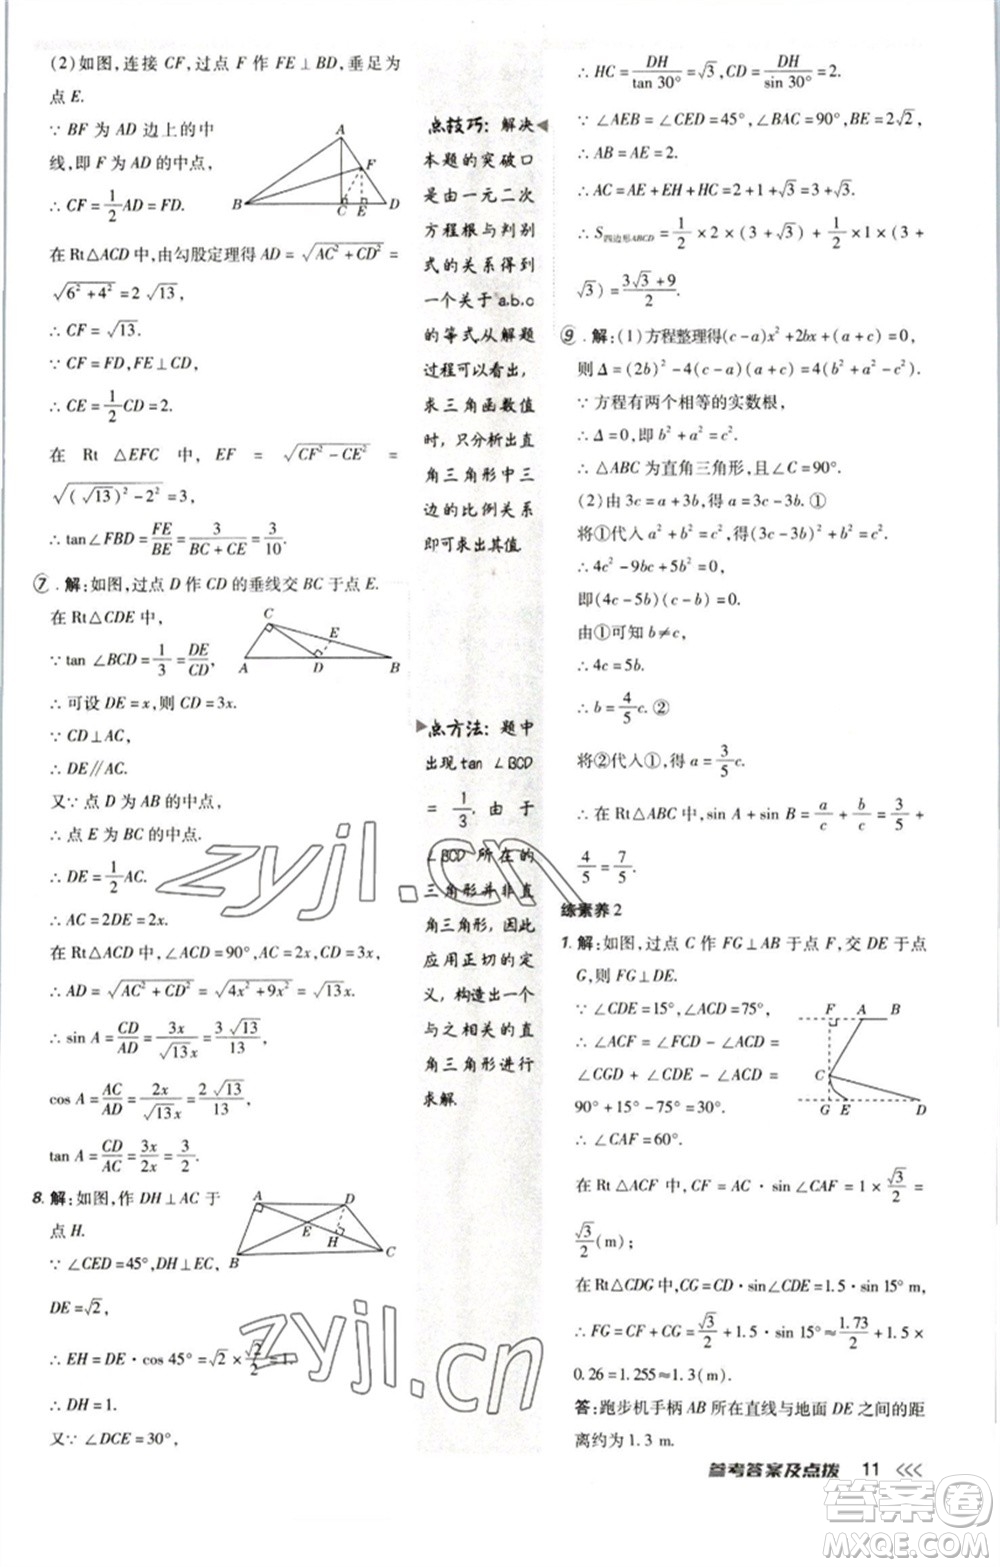 (2)如图,连接 CF,过点 F 作 FE⊥BD,垂足为
点 E.
∵ BF 为 AD 边上的中
线,即 F 为 AD 的中点,
∴ CF=1/2 AD=FD.
在 Rt△ACD 中,由勾股定理得 AD=√(AC²+CD²)=
√(6²+4²)=2√13,
∴ CF=√13.
∵ CF=FD,FE⊥CD,
∴ CE=1/2 CD=2.
在 Rt △EFC 中, EF = √(CF²-CE²) =
√((√13)²-2²)=3,
∴ tan∠FBD=FE/BE=3/(BC+CE)=3/10.
A
F
B
C
E
D
⑦.解:如图,过点 D 作 CD 的垂线交 BC 于点 E.
在 Rt△CDE 中,
∵ tan ∠BCD=1/3=DE/CD,
∴ 可设 DE=x,则 CD=3x.
∵ CD⊥AC,
∴ DE∥AC.
又∵ 点 D 为 AB 的中点,
∴ 点 E 为 BC 的中点.
∴ DE=1/2 AC.
∴ AC=2DE=2x.
在 Rt△ACD 中,∠ACD=90°,AC=2x,CD=3x,
∴ AD=√(AC²+CD²)=√(4x²+9x²)=√13x.
∴ sin A=CD/AD=3x/√13x=3√13/13,
cos A=AC/AD=2x/√13x=2√13/13,
tan A=CD/AC=3x/2x=3/2.
C
E
A
D
B
8. 解:如图,作 DH⊥AC 于
点 H.
∵ ∠CED=45°,DH⊥EC,
DE=√2,
∴ EH=DE·cos 45°=√2×√2/2=1.
∴ DH=1.
又∵ ∠DCE=30°,
A
D
E
H
B
C
点技巧: 解决
本题的突破口
是由一元二次
方程根与判别
式的关系得到
一个关于a,b,c
的等式从解题
过程可以看出,
求三角函数值
时,只分析出直
角三角形中三
边的比例关系
即可求出其值.
点方法: 题中
出现tan ∠BCD
= 1/3, 由于
∠BCD 所在的
三角形并非直
角三角形,因此
应用正切的定
义,构造出一个
与之相关的直
角三角形进行
求解.
∴ HC=DH/tan 30°=√3,CD=DH/sin 30°=2.
∵ ∠AEB=∠CED=45°,∠BAC=90°,BE=2√2,
∴ AB=AE=2.
∴ AC=AE+EH+HC=2+1+√3=3+√3.
∴ S四边形ABCD=1/2×2×(3+√3)+1/2×1×(3+
√3)=(3√3+9)/2.
⑨.解:(1)方程整理得(c-a)x²+2bx+(a+c)=0,
则 Δ=(2b)²-4(c-a)(a+c)=4(b²+a²-c²).
∵ 方程有两个相等的实数根,
∴ Δ=0,即 b²+a²=c².
∴ △ABC 为直角三角形,且∠C=90°.
(2)由 3c=a+3b,得 a=3c-3b. ①
将①代入 a²+b²=c²,得(3c-3b)²+b²=c².
∴ 4c²-9bc+5b²=0,
即(4c-5b)(c-b)=0.
由①可知 b≠c,
∴ 4c=5b.
∴ b=4/5 c. ②
将②代入①,得 a=3/5 c.
∴ 在 Rt△ABC 中,sin A+sin B=a/c+b/c=3/5+
4/5=7/5.
练素养 2
1. 解:如图,过点 C 作 FG⊥AB 于点 F,交 DE 于点
G,则 FG⊥DE.
∵ ∠CDE=15°,∠ACD=75°,
∴ ∠ACF=∠FCD-∠ACD=
∠CGD+∠CDE-∠ACD=
90°+15°-75°=30°.
∴ ∠CAF=60°.
在 Rt△ACF 中,CF=AC·sin ∠CAF=1×√3/2=
√3/2(m);
在 Rt△CDG 中,CG=CD·sin∠CDE=1.5·sin 15°,
∴ FG=CF+CG=√3/2+1.5·sin 15°≈1.73/2+1.5×
0.26=1.255≈1.3(m).
答:跑步机手柄 AB 所在直线与地面 DE 之间的距
离约为 1.3 m.
F
A
B
C
G
E
D
参考答案及点拨 11
zyjl.cn
zyjl.cn
答案卷
MXQE.COM